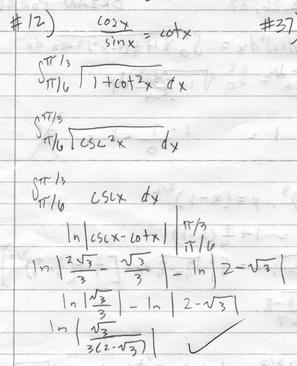 #12) cosx/sinx = cotx #37
∫π/6^π/3 √(1+cot²x) dx
∫π/6^π/3 √(csc²x) dx
∫π/6^π/3 cscx dx
ln|cscx-cotx| |π/6^π/3
ln|2√3/3 - √3/3| - ln|2-√3|
ln|√3/3| - ln|2-√3|
ln|√3/3(2-√3)| ✓